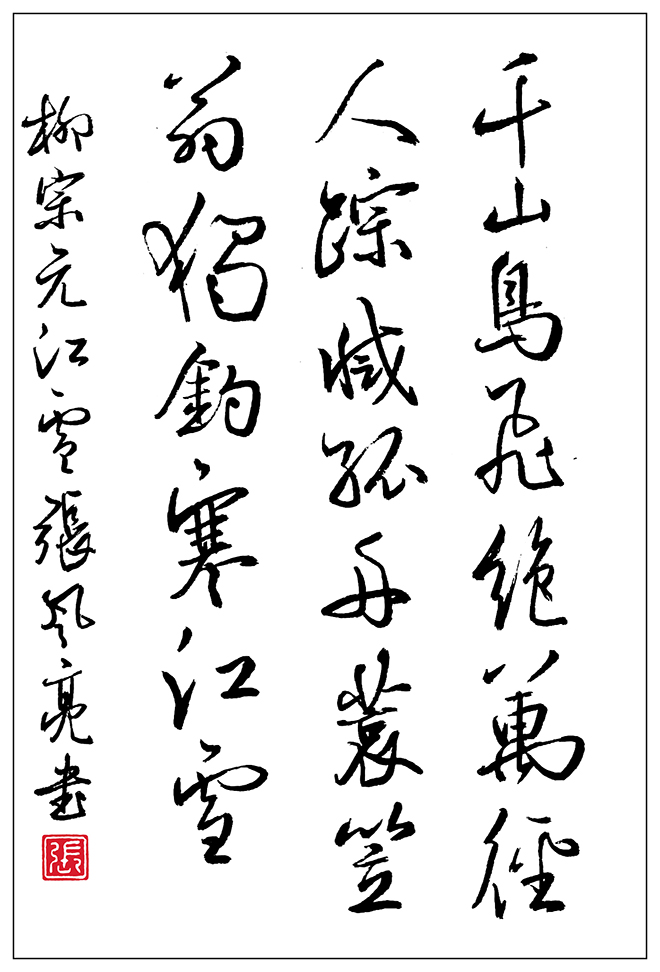 千山鳥飛絕萬徑
人踪滅孤舟蓑笠
翁獨釣寒江雪
柳宗元江雪張亮書
張